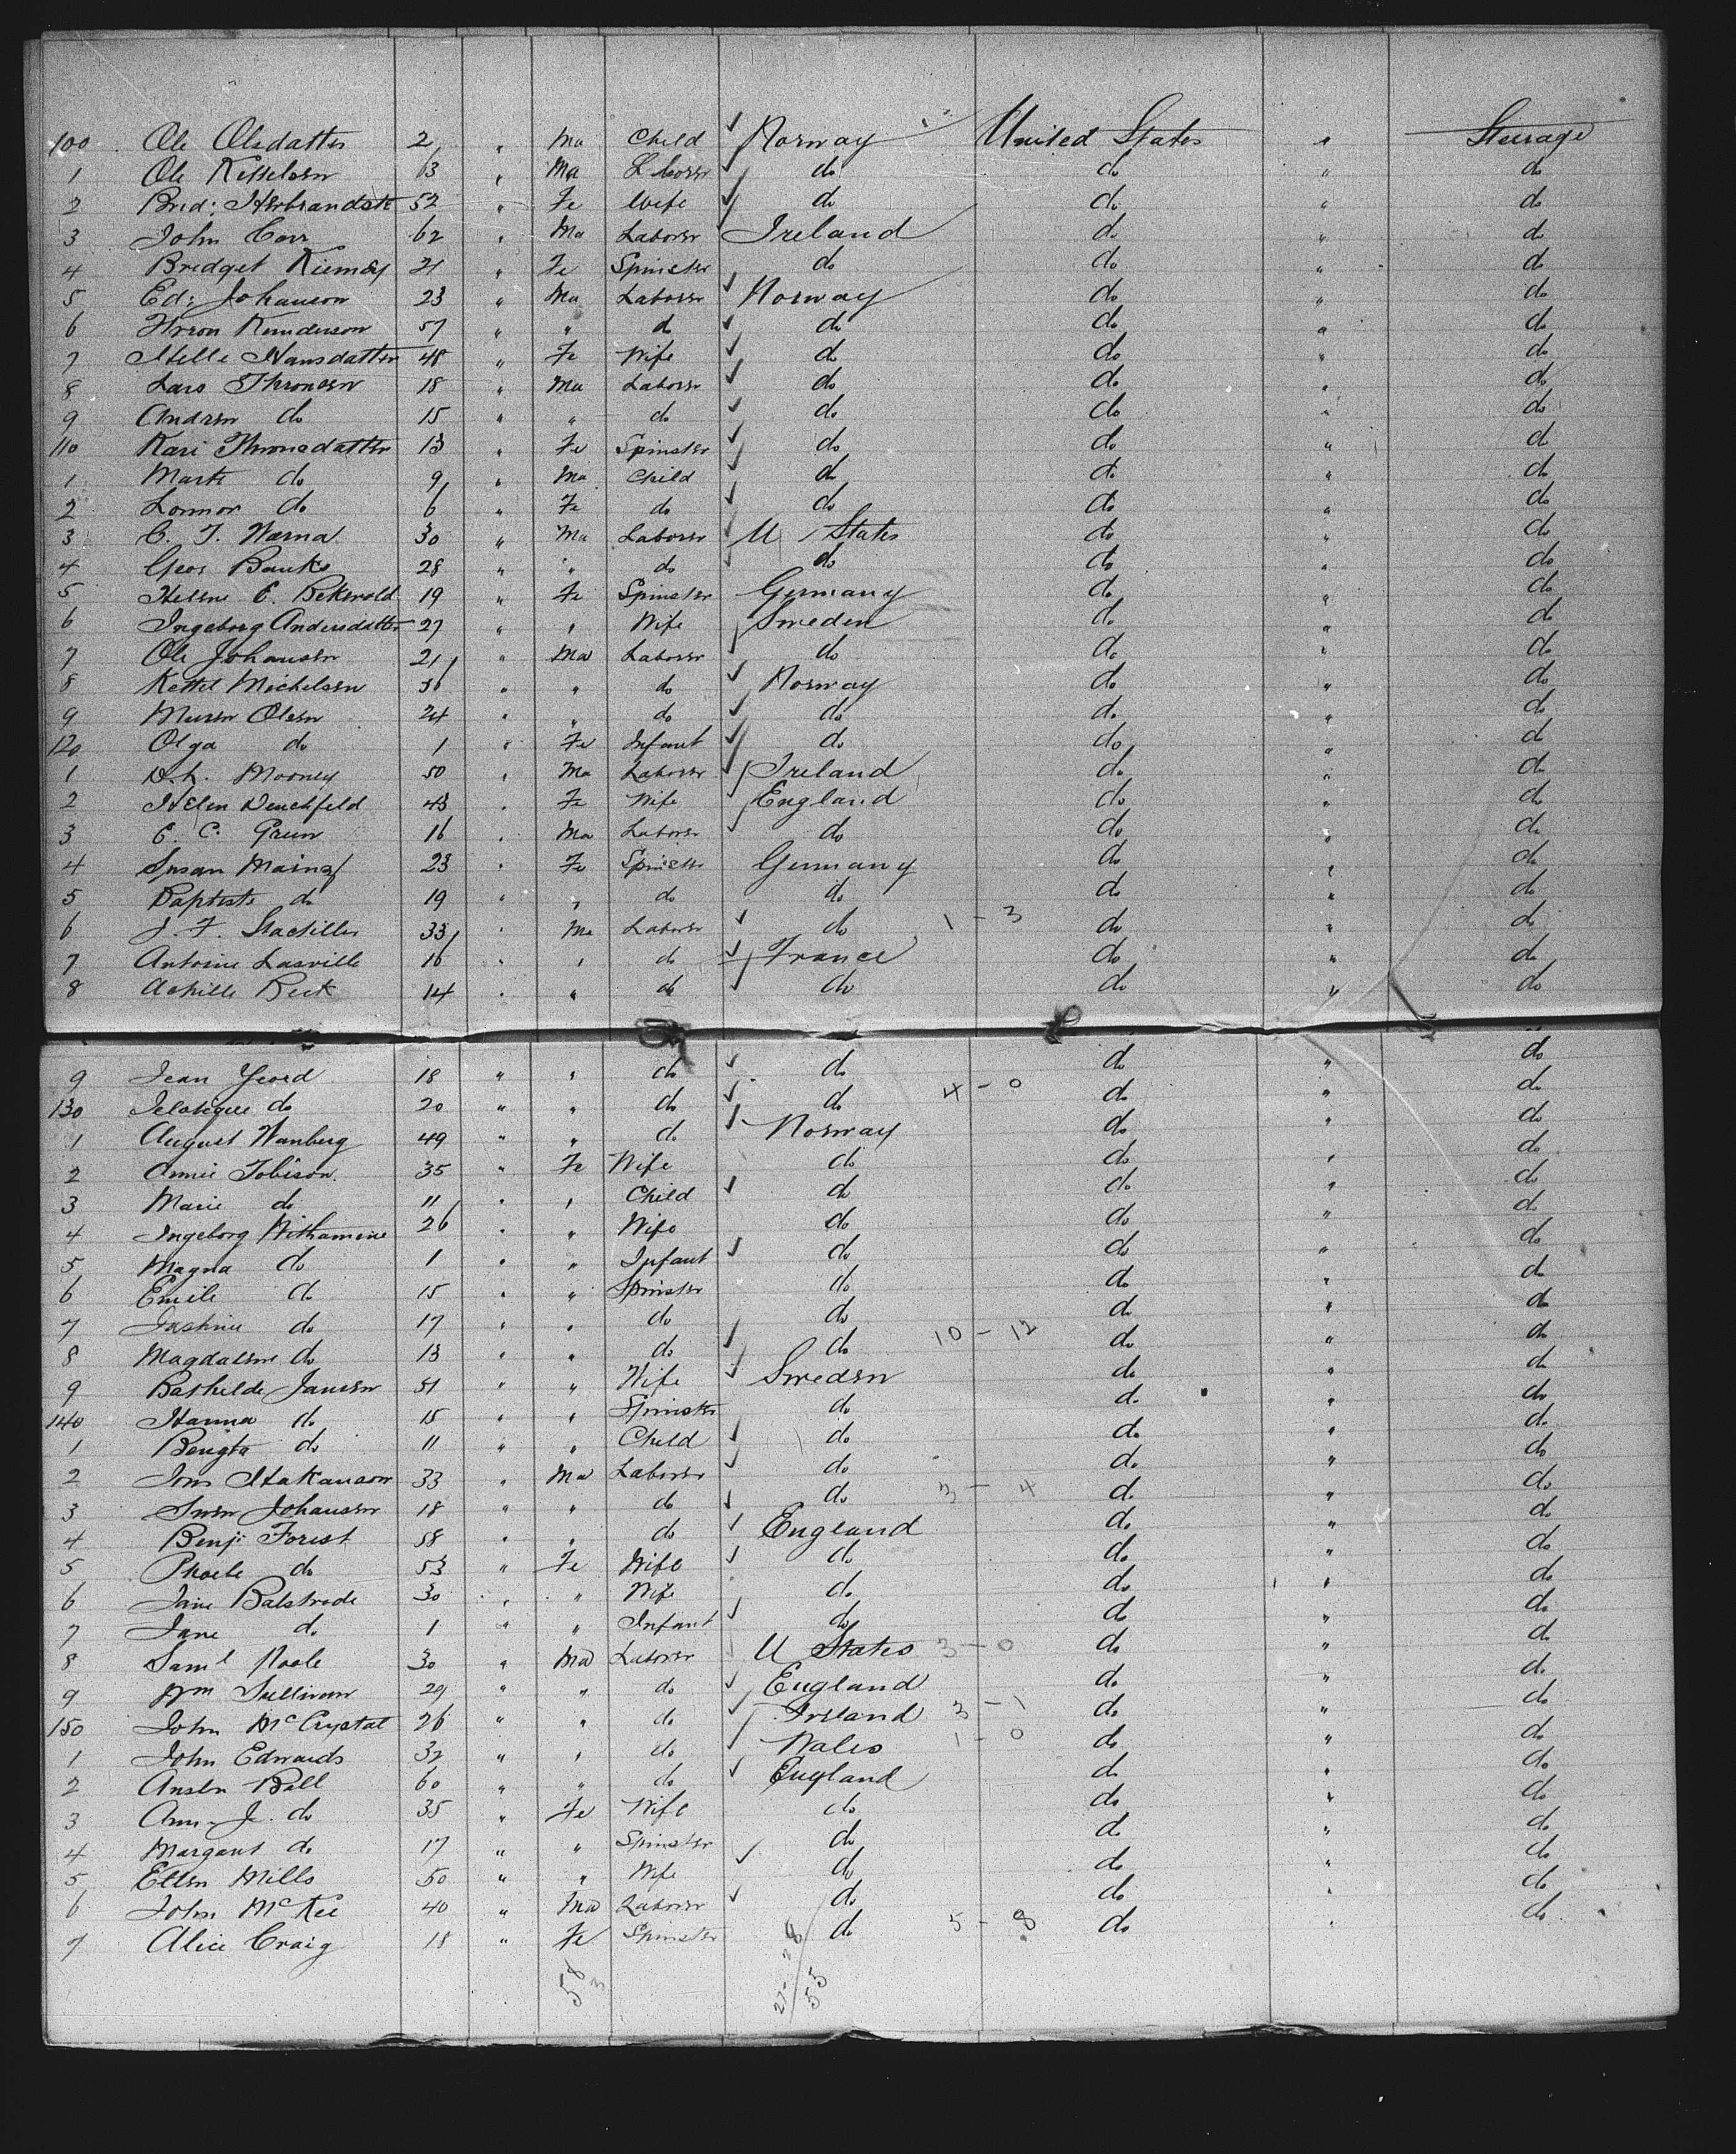 100 Ole Olsdatter 2 " Ma Child Norway United States " Steerage
1 Ole Kittelsen 63 " Ma Laborer do do " do
2 Bred: Herbrandsdt 52 " Fe Wife do do " do
3 John Corr 62 " Ma Laborer Ireland do " do
4 Bridget 21 " Fe Spinster do do " do
5 Ed: Johanson 23 " Ma Laborer Norway do " do
6 Knuderson 57 " " do do do " do
7 Hansdatter 48 " Fe Wife do do " do
8 Lars Thronsen 18 " Ma Laborer do do " do
9 Andren do 15 " " do do do " do
110 Kari Thronsdatter 13 " Fe Spinster do do " do
1 Marte do 9 " Ma Child do do " do
2 Lonnor do 6 " Fe do do do " do
3 C. T. Warna 30 " Ma Laborer U States do " do
4 Geor Banks 28 " " do do do " do
5 Helene E. Bekwold 19 " Fe Spinster Germany do " do
6 Ingeborg Andersdatter 27 " " Wife Sweden do " do
7 Ole Johansen 21 " Ma Laborer do do " do
8 Kettel Michelsen 36 " " do Norway do " do
9 Olsen 24 " " do do do " do
120 Olga do 1 " Fe Infant do do " do
1 D. L. Mooney 50 " Ma Laborer Ireland do " do
2 Helen Denchfeld 43 " Fe Wife England do " do
3 E. C. Grun 16 " Ma Laborer do do " do
4 Susan Mainz 23 " Fe Spinster Germany do " do
5 Baptiste do 19 " " do do do " do
6 J. F. 33 " Ma Laborer do 1 - 3 do " do
7 Antoine Lasville 16 " " do France do " do
8 Achille Beck 14 " " do do do " do
9 Jean 18 " " do do do " do
130 do 20 " " do do 4 - 0 do " do
1 August Wanberg 49 " " do Norway do " do
2 Annie Tobison 35 " Fe Wife do do " do
3 Marie do 11 " " Child do do " do
4 Ingeborg Withamine 26 " " Wife do do " do
5 Magna do 1 " " Infant do do " do
6 Emile do 15 " " Spinster do do " do
7 do 17 " " do do do " do
8 Magdalene do 13 " " do do 10 - 12 do " do
9 Bathilde Jansen 51 " " Wife Sweden do " do
140 Hanna do 15 " " Spinster do do " do
1 Bengta do 11 " " Child do do " do
2 Jons Hakanson 33 " Ma Laborer do do " do
3 Sven Johansen 18 " " do do 3 - 4 do " do
4 Benj: Forest 58 " " do England do " do
5 Phoebe do 53 " Fe Wife do do " do
6 Jane Balstrode 30 " " Wife do do " do
7 Jane do 1 " " Infant do do " do
8 Saml Poole 30 " Ma Laborer U States 3 - 0 do " do
9 Wm Sullivan 29 " " do England do " do
150 John McCrystal 26 " " do Ireland 3 - 1 do " do
1 John Edwards 32 " " do Wales 1 - 0 do " do
2 Ansen Ball 60 " " do England do " do
3 Ann J. do 35 " Fe Wife do do " do
4 Margaret do 17 " " Spinster do do " do
5 Ellen Mills 50 " " Wife do do " do
6 John McKee 40 " Ma Laborer do do " do
7 Alice Craig 18 " Fe Spinster do 5 - 8 do " do
58
3
27-28
55